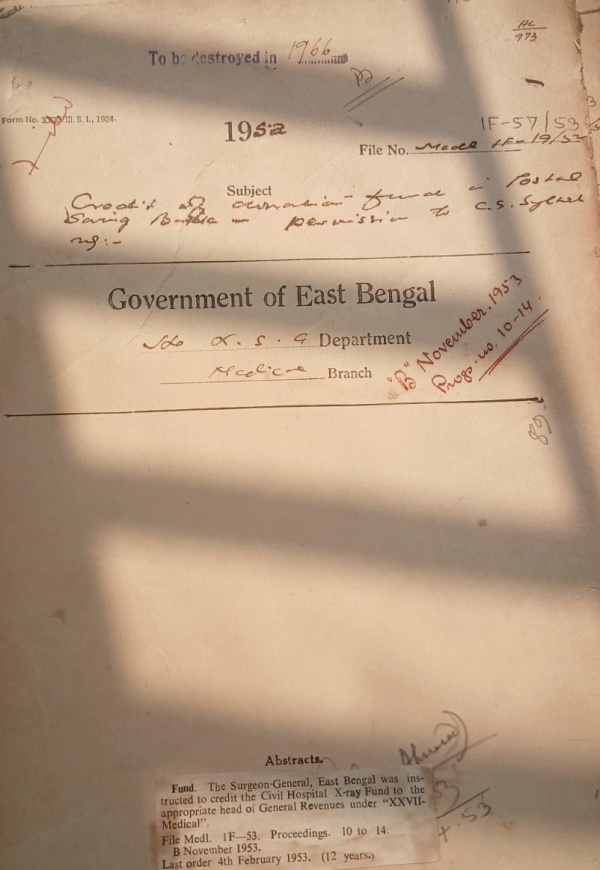 HC
973
To be destroyed in 1966
B
Form No. XXXV/III. S. I., 1924.
1952
1F-57/53
File No. Medl 1F-19/52
Subject
Credit of donation fund in Postal
Saving Banks - permission to C.S. Sylhet
rg:-
Government of East Bengal
H & L. S. G Department
Medical Branch
"B" November. 1953
Progs. no. 10-14.
89
Abstracts.
Fund. The Surgeon-General, East Bengal was ins-
tructed to credit the Civil Hospital X-ray Fund to the
appropriate head of General Revenues under "XXVII-
Medical".
File Medl. 1F—53. Proceedings. 10 to 14.
B November 1953.
Last order 4th February 1953. (12 years.)
53